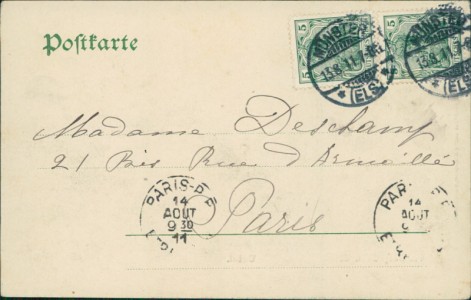 Postkarte
5 5
MÜNSTER
13.8.11
(ELS)
Madame Deschamp
21 Bis Rue d'Armaillé
Paris
PARIS-P.E
14
AOUT
9 30
11
PAR
14
AOUT
9